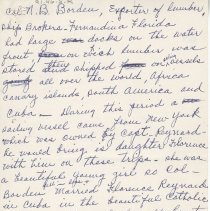 Col N. B. Borden, Exporter of lumber
ship Brokers, Fernandina Florida
had large docks on the water
front on which lumber was
stored shipped on vessels
all over the world, Africa
canary islands, South America and
Cuba — During this period a
sailing vessel came from New York
which was owned by Capt. Reynard -
he would bring is daughter Florence
with him on these trips - she was
a beautiful young girl so Col -
Borden married Florence Reynard
in Cuba in the beautiful Catholic